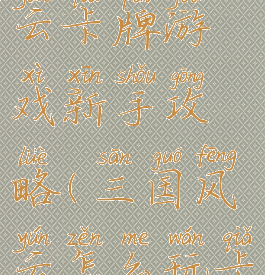 云卡牌游
xì xīn shǒu gōng
戏新手攻
lüè sān guó fēng
略(三国风
yún zěn me wán qiǎ
云怎么玩卡